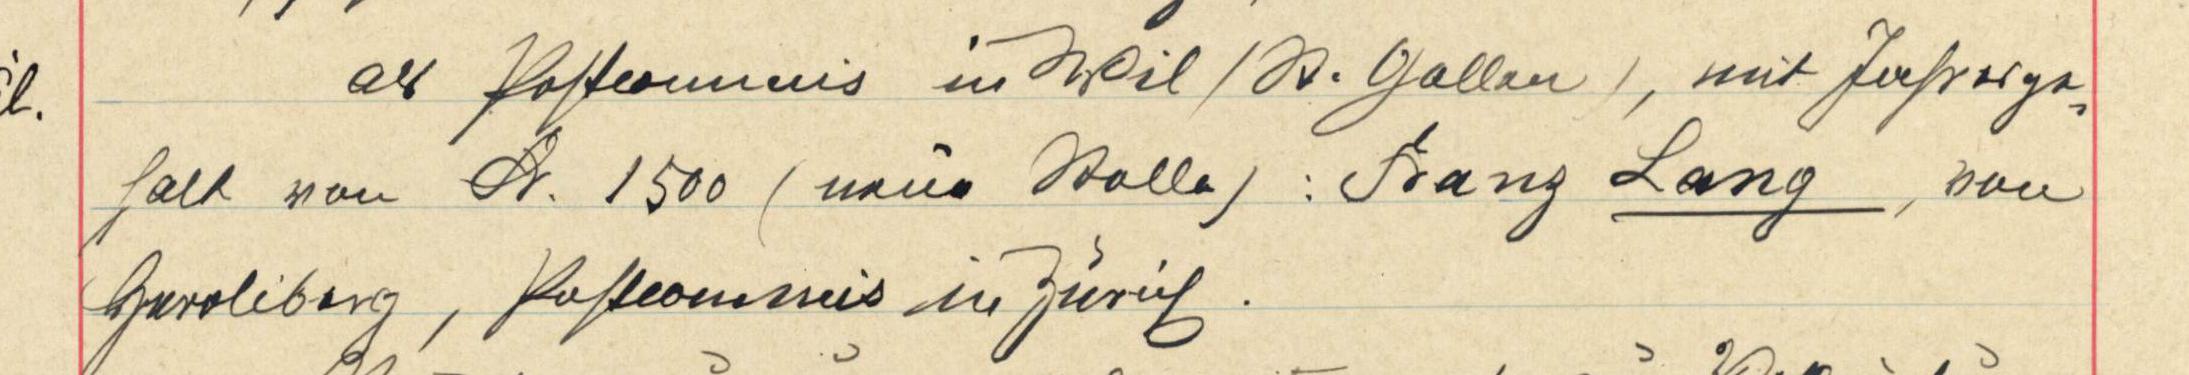 als Postcommis in Wil (St. Gallen), mit Jahresge-
halt von Fr. 1500 (neue Stelle): Franz Lang, von
Geroliberg, Postcommis in Zürich.